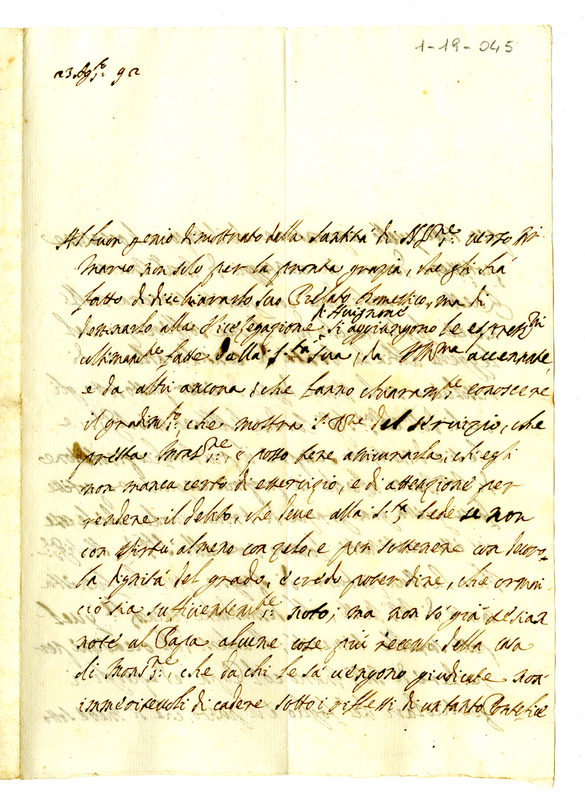 1-19-045
23 Ag.to 92
Al buon genio dimostrato della Santità di N. Sre verso
Marco non solo per la pronta grazia, che gli hà
fatto di dicchiararlo suo Prelato Domestico, ma di
destinarlo alla Vice legazione si aggiungono le espressni
d'Avignone
ultimamte fatte dalla S.tà Sua, da accennate
e da altri ancora, che fanno chiaramte conoscere
il gradimto, che mostra del servizio, che
presta Monsre; e posso bene assicurarla, ch'egli
non manca certo di esercizio, e di attenzione per
rendere il debito, che deve alla S.ta Sede se non
con virtù almeno con zelo, e per sostenere con decoro
la dignità del grado, e credo poter dire, che ormai
ciò sia sufficientemte noto; ma non sò già se sian
note al Papa alcune cose più recenti della casa
di Monsre, che da chi le sà vengono giudicate non
immeritevoli di cadere sotto i riflessi di un tanto Pontefice